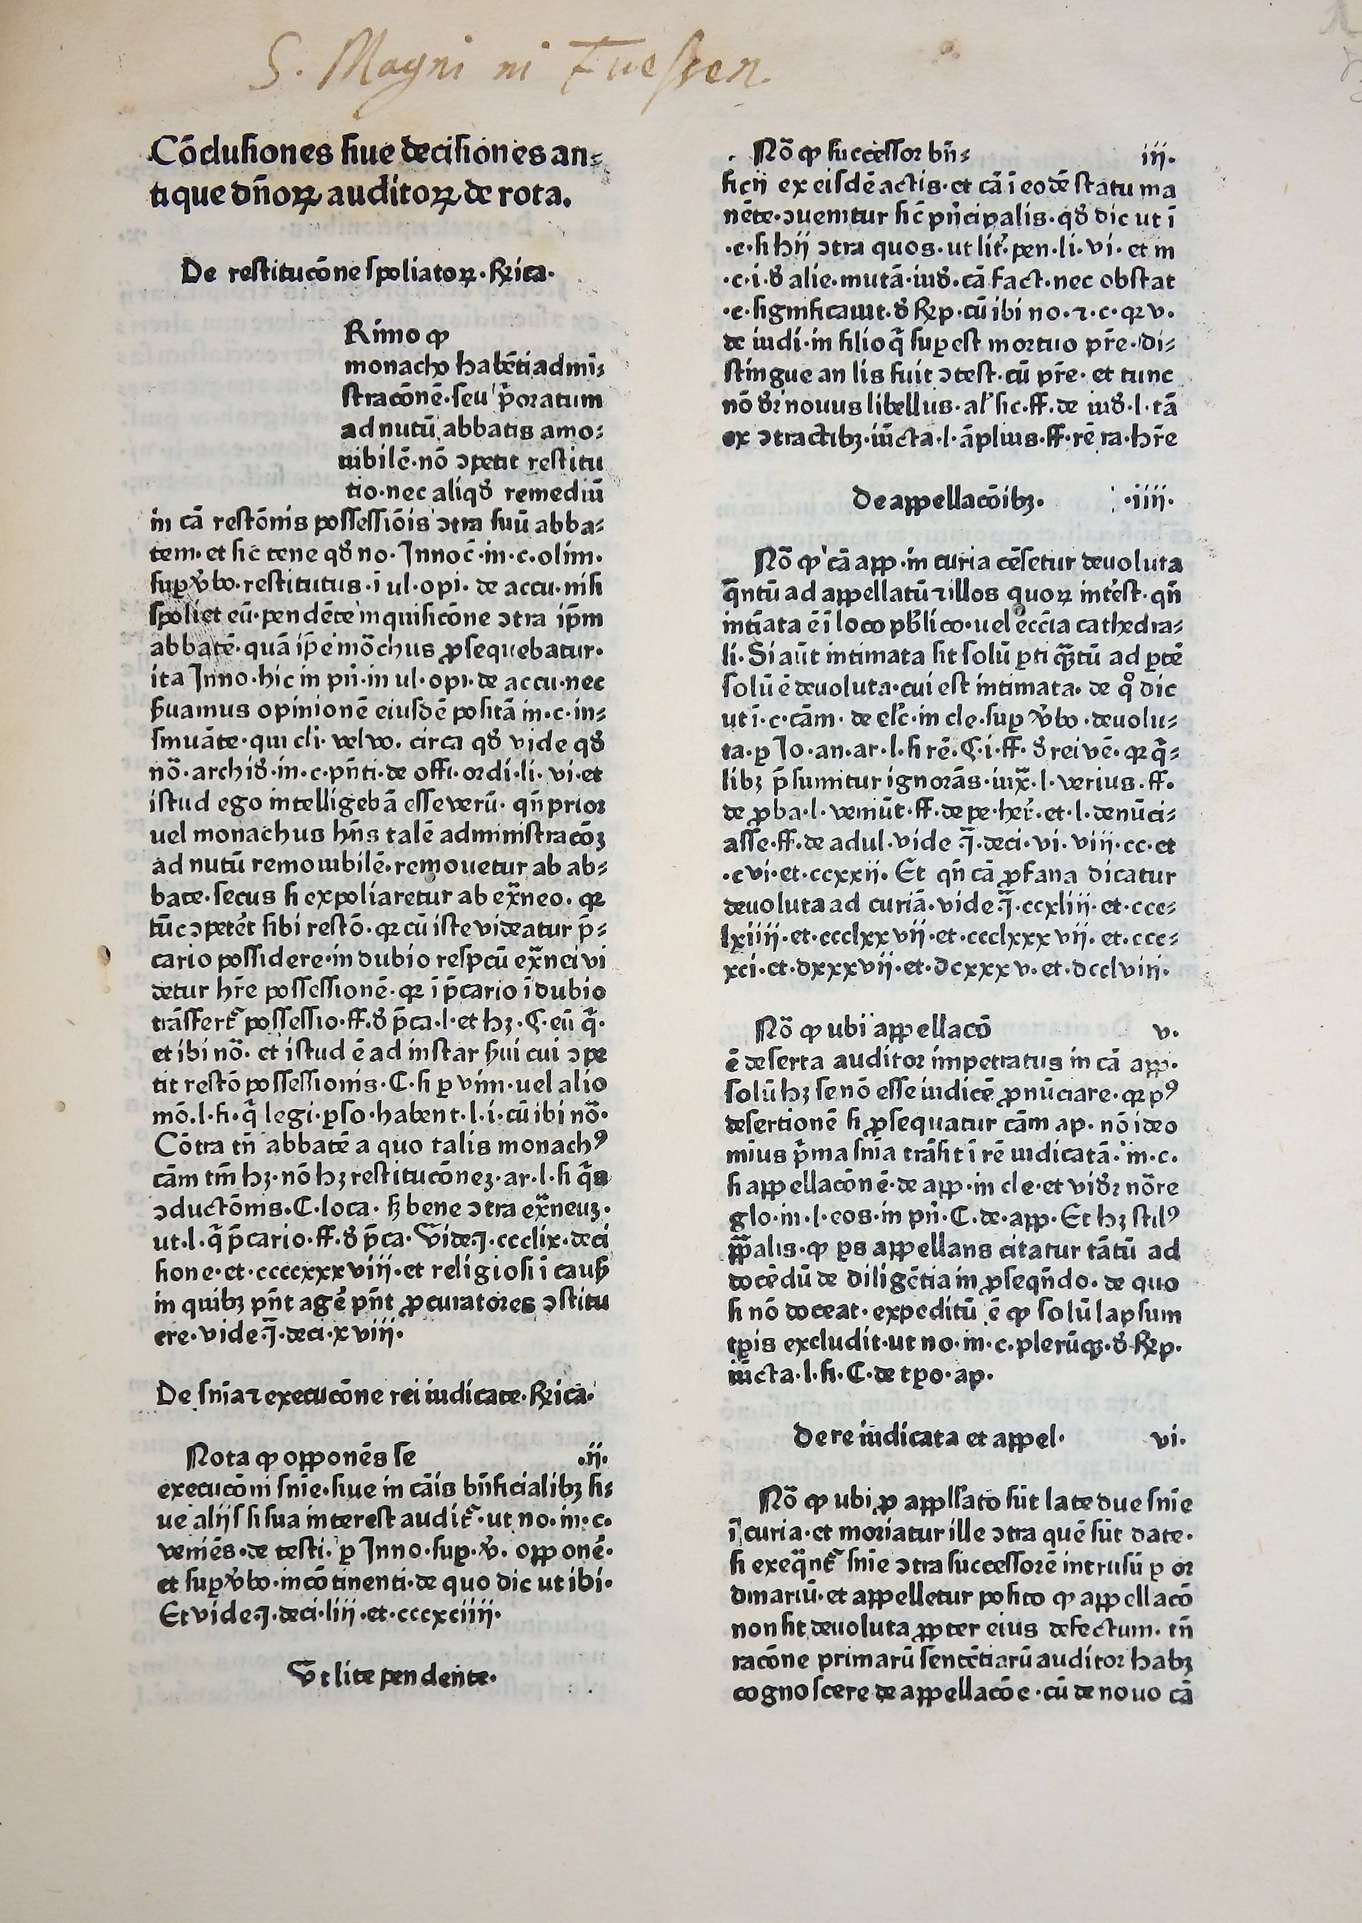 S. Magni in Fuessen
Cōclusiones siue decisiones an⸗
tique dn̄oꝝ auditoꝝ de rota.
De restitucōne spoliatoꝝ·Rica·
Rimo ꝙ
monacho habēti admi⸗
stracōnē·seu p̄oratum
ad nutū abbatis amo⸗
uibilē·nō ↄpetit restitu
tio·nec aliqđ remediū
in cā restōnis possessiōis ↄtra suū abba⸗
tem·et sic̄ tene qđ no·Innoc̄·in·c·olim·
suꝑ v̄bo·restitutus·ī ul·opi·de accu·nisi
spoliet eū·pendēte inquisicōne ↄtra ip̄m
abbatē·quā ip̄e mōchus ꝓsequebatur·
ita Inno·hic in pn̄·in ul·opi·de accu·nec
s̄uamus opinionē eiusdē positā in·c·in⸗
sinuāte·qui cli·vel vo. circa qđ vide qđ
nō·archiđ·in·c·pn̄ti·de offi·ordi·li·vi·et
istud ego intelligebā esse verū·qn̄ prior
uel monachus hn̄s talē administracōꝫ
ad nutū remouibilē·remouetur ab ab⸗
bate·secus si expoliaretur ab ex̄neo·qꝛ
tūc ↄpetēt sibi restō·qꝛ cū iste videatur p̄⸗
cario possidere·in dubio respcū ex̄nei vi
detur hr̄e possessionē·qꝛ ī p̄cario ī dubio
trāsfert᷑ possessio·ff·đ p̄ca·l·et hꝫ·C·eū q̄·
et ibi nō·et istud ē ad instar s̄ui cui ↄpe
tit restō possessionis·C·si ꝑ vim·uel alio
mō·l·si·q̄ legi·ꝑso·habent·l·i·cū ibi nō·
Cōtra tn̄ abbatē a quo talis monachꝰ
cām tm̄ hꝫ·nō hꝫ restitucōneꝫ·ar·l·si q̄s
ↄductōnis·C·loca·sꝫ bene ↄtra ex̄neuꝫ·
ut·l·q̄ p̄cario·ff·đ p̄ca·Vide ī·cccclix·deci
sione·et·ccccxxxviii·et religiosi ī causis
in quibꝫ pn̄t agē pn̄t ꝓcuratores ↄstitu
ere·vide ī·deci·xviii·
De sn̄ia ⁊ execucōne rei iudicate·Rica·
Nota ꝙ opponēs se ·ii·
execucōni sn̄ie·siue in cāis bn̄ficialibꝫ si⸗
ue alijs si sua interest audit᷑·ut no·in·c·
veniēs·de testi·ꝑ Inno·suꝑ·v̄·opponē·
et suꝑ v̄bo·incōtinenti·de quo dic ut ibi·
Et vide ī·deci·liii·et·cccxciiii·
Vt lite pendente·
Nō ꝙ successor bn̄⸗ iii·
ficij ex eisdē actis·et cā ī eodē statu ma
nēte·ↄuenitur sic̄ pn̄cipalis·qđ dic ut ī
·c·si hij ↄtra quos·ut lit᷑·pen·li·vi·et in
·c·i·đ alie·mutā·iuđ·cā fact·nec obstat
·c·significauit·đ Rep·cū ibi no·⁊·c·qꝛ v·
de iudi·in filio q̄ suꝑest mortuo pr̄e·di⸗
stingue an lis fuit ↄtest·cū pr̄e·et tunc
nō đꝛ nouus libellus·al's sic·ff·de iuđ·l·tā
ex ↄtractibꝫ·iūcta·l·āplius·ff·rē ra·hr̄e
De appellacōibꝫ· ·iiii·
Nō ꝙ cā app·in curia cēsetur deuoluta
q̄ntū ad appellatū ⁊ illos quoꝝ intēst·qn̄
intīata ē ī loco pƀlico·uel ecc̄ia cathedra⸗
li·Si aūt intimata sit solū ꝑti q̄tū ad ꝑtē
solū ē deuoluta·cui est intimata·de qͦ dic
ut ī·c·cām·de elc̄·in cle·suꝑ v̄bo·deuolu⸗
ta·ꝑ Jo·an·ar·l·si rē·C·i·ff·đ rei vē·qꝛ q̄⸗
libꝫ p̄sumitur ignorās·iux̄·l·verius·ff·
de ꝓba·l·veniūt·ff·de pe·her̄·et·l·denūci⸗
asse·ff·de adul·vide ī·deci·vi·viii·cc·et
·cvi·et·ccxxii·Et qn̄ cā ꝓfana dicatur
deuoluta ad curiā·vide ī·ccxliii·et·ccc⸗
lxiiii·et·ccclxxvii·et·ccclxxxvii·et·ccc⸗
xci·et·dxxxvii·et·dcxxxv·et·dcclviii·
Nō ꝙ ubi appellacō v·
ē deserta auditor impetratus in cā app·
solū hꝫ se nō esse iudicē ꝓnūciare·qꝛ pꝰ
desertionē si ꝓsequatur cām ap·nō ideo
mius p̄ma sn̄ia trāsit ī rē iudicatā·in·c·
si appellacōnē·de app·in cle·et viđꝛ nōre
glo·in·l·eos·in pn̄·C·de·app·Et hꝫ stilꝰ
ꝓꝓalis·ꝙ ps appellans citatur tātū ad
docēdū de diligētia in ꝓseqn̄do·de quo
si nō doceat·expeditū ē ꝙ solū lapsum
tp̄is excludit·ut no·in·c·plerūqꝫ·đ Rep·
iūcta·l·si·C·de tpo·ap·
De re iudicata et appel· vi·
Nō ꝙ ubi ꝓ applłato sūt late due sn̄ie
ī curia·et moriatur ille ↄtra quē sūt date·
si exeq̄nt᷑ sn̄ie ↄtra successorē intrusū ꝑ or
dinariū·et appelletur posito ꝙ appellacō
non sit deuoluta ꝓpter eius defectum·tn̄
racōne primarū sentētiarū auditor habꝫ
cognoscere de appellacōe·cū de nouo cā